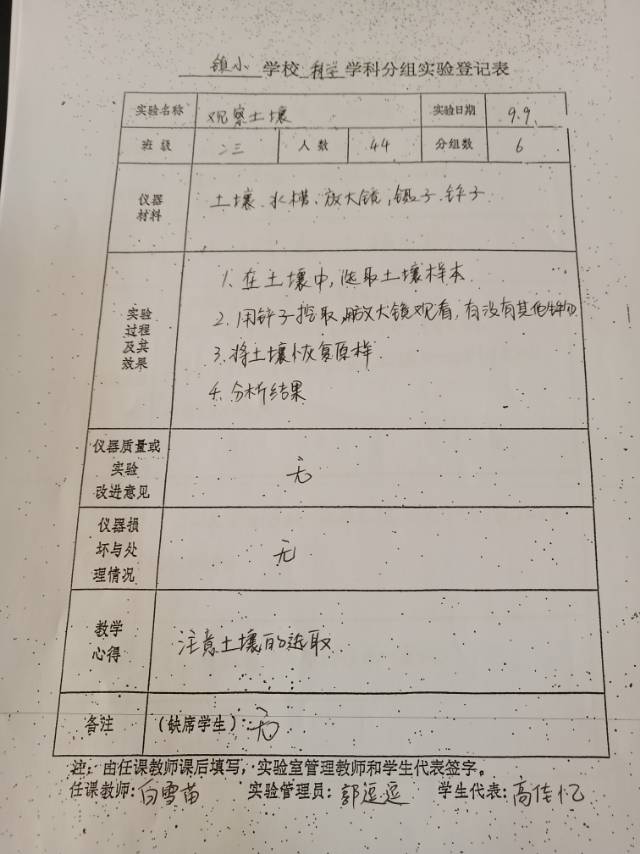 镇小 学校 科学 学科分组实验登记表
实验名称 观察土壤 实验日期 9.9.
班级 二三 人数 44 分组数 6
仪器
材料
土壤、水槽、放大镜、镊子、铲子
实验
过程
及其
效果
1. 在土壤中,选取土壤样本
2. 用铲子挖取,用放大镜观看,有没有其他
3. 将土壤恢复原样.
4. 分析结果
仪器质量或
实验
改进意见
无
仪器损
坏与处
理情况
无
教学
心得
注意土壤的选取
备注 (缺席学生): 无
注: 由任课教师课后填写,实验室管理教师和学生代表签字。
任课教师: 白雪苗 实验管理员: 郭逗逗 学生代表: 高佳忆